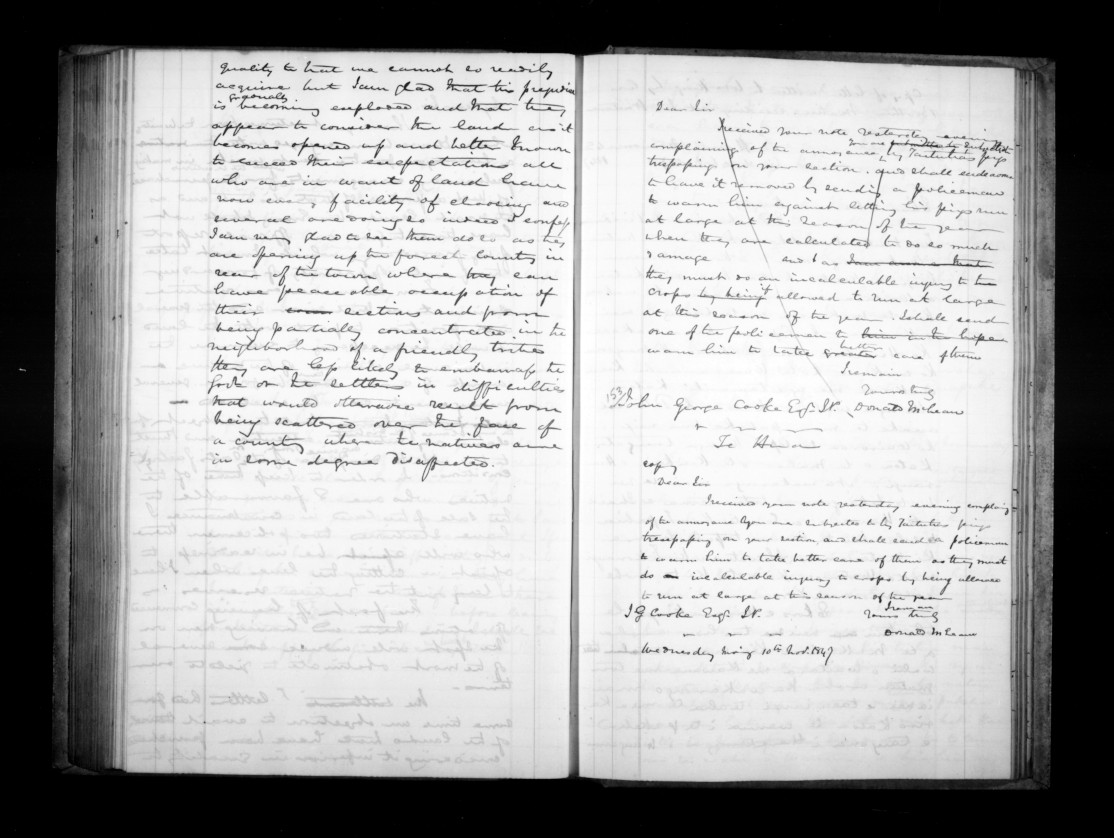 quality to that we cannot so readily
acquire but I am glad that this prejudice
gradually
is becoming exploded and that they
appear to consider the land as it
becomes opened up and better known
to exceed their expectations all
who are in want of land have
now every facility of choosing and
several are doing so indeed I confess
I am very glad to see them do so as they
are opening up the forest country in
rear of the town where they can
have peaceable occupation of
their sections and from
being partially concentrated in the
neighborhood of a friendly tribe
they are less likely to embarrass the
Govt or the settlers in difficulties
that would otherwise result from
being scattered over the face of
a country where the natives are
in some degree disaffected.
Dear Sir
I received your note yesterday evening
you are subjected to
complaining of the annoyance by Tuitutus pigs
trespassing on your section. and shall endeavour
to have it removed by sending a policeman
to warn him against letting his pigs run
at large at this season of the year
when they are calculated to do so much
damage and as
they must do an incalculable injury to the
crops by being allowed to run at large
at this season of the year I shall send
one of the policemen to him in the hope
better
warn him to take greater care of them
I remain
Yours truly
153 John George Cooke Esqr. J.P. Donald McLean
Te Henui
Copy
Dear Sir
I received your note yesterday evening complaing
of the annoyance you are subjected to by Tuitutus pigs
trespassing on your section, and shall send a policeman
to warn him to take better care of them as they must
do incalculable injury to crops by being allowed
to run at large at this season of the year
I remain
J G Cooke Esqr. J.P. Yours truly
Donald McLean
Wednesday Morg 10th Novr. 1847